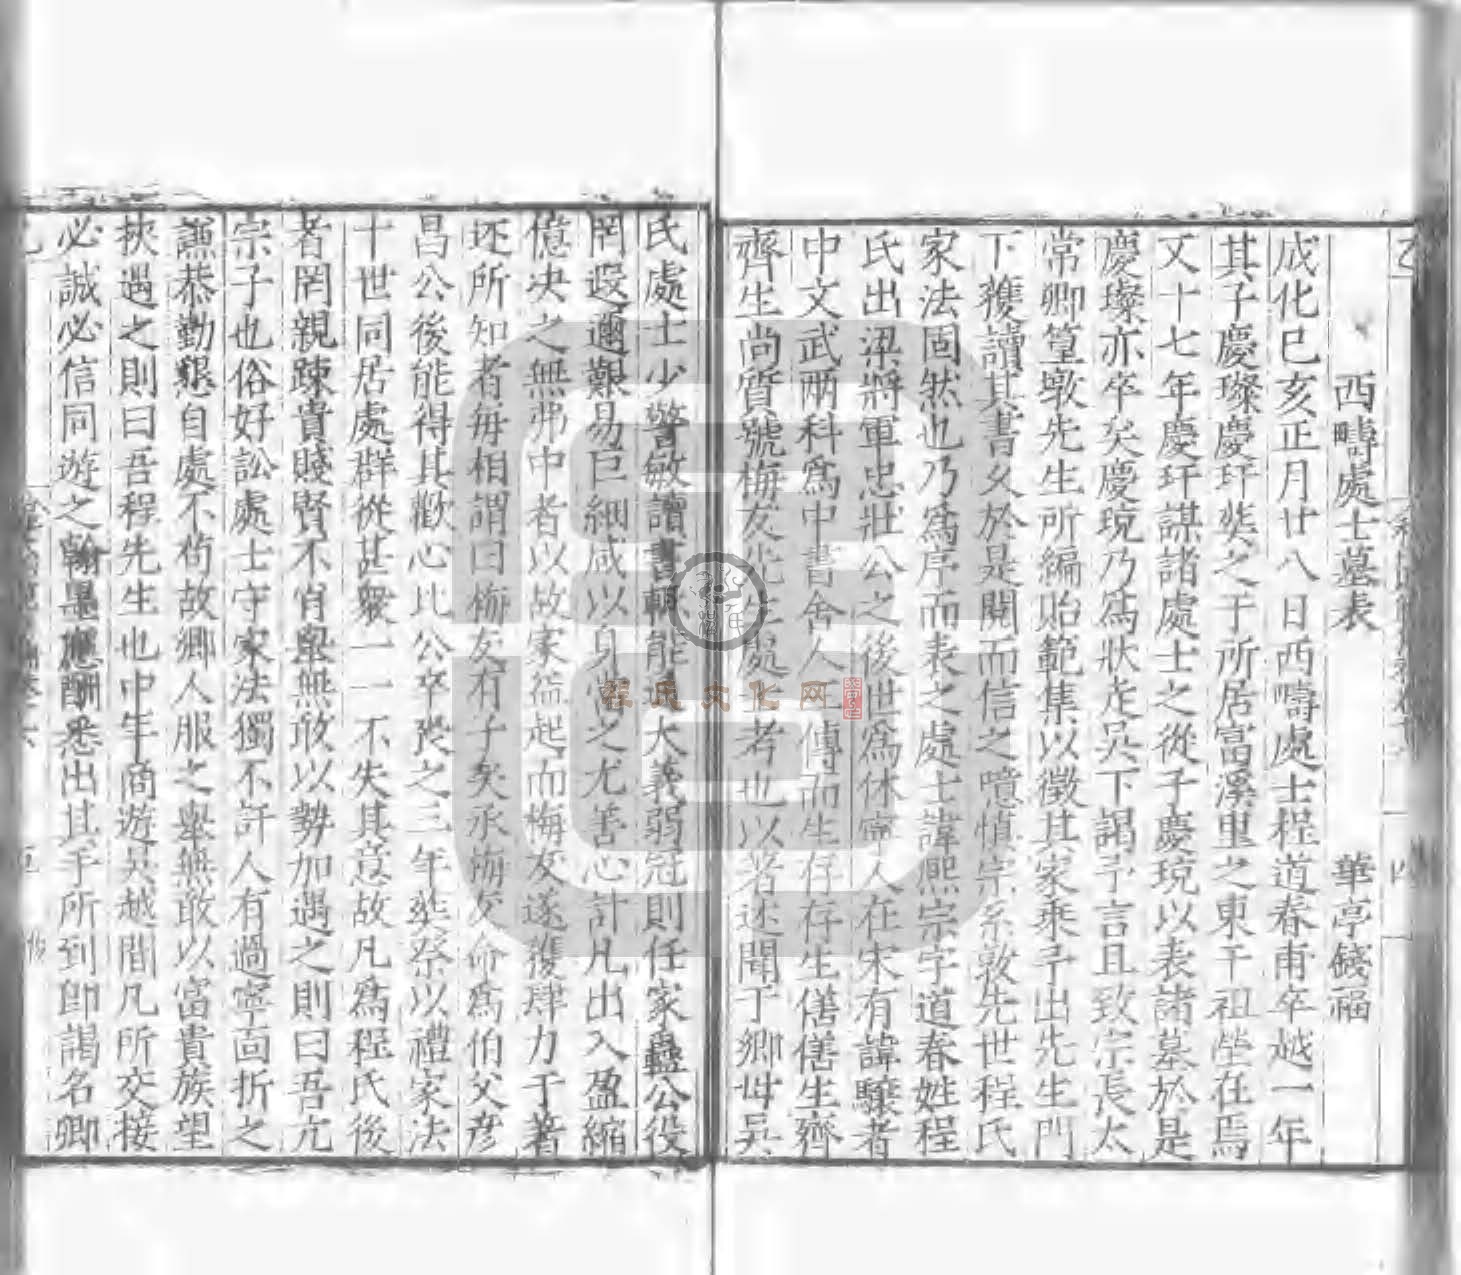 西疇處士墓表　華亭錢福
成化己亥正月廿八日西疇處士程道春甫卒越一年
其子慶璨慶玶葬之于所居富溪里之東干祖塋在焉
又十七年慶玶謀諸處士之從子慶琬以表諸墓於是
慶璨亦卒矣慶琬乃為狀走吳下謁予言且致宗長太
常卿篁墩先生所編貽範集以徵其家乘予出先生門
下獲讀其書久於是閱而信之噫慎宗系敦先世程氏
家法固然也乃為序而表之處士諱熈宗字道春姓程
氏出梁將軍忠壯公之後世為休寧人在宋有諱驤者
中文武兩科為中書舍人五傳而生存存生僐僐生齊
齊生尚質號梅友先生處士考也以著述聞于鄉母吳
氏處士少警敏讀書輒能大義弱冠則任家蠱公役
罔遐邇艱易巨細咸以身當之尤善心計凡出入盈縮
億决之無弗中者以故家益起而梅友遂獲肆力于著
述所知者每相謂曰梅友有子矣承梅友命為伯父彦
昌公後能得其歡心比公卒喪之三年葬祭以禮家法
十世同居處群從甚衆一一不失其意故凡為程氏後
者罔親踈貴賤賢不肖舉無敢以勢加遇之則曰吾亢
宗子也俗好訟處士守家法獨不許人有過寧面折之
謙恭勤懇自處不苟故鄉人服之舉無敢以富貴族望
挾遇之則曰吾程先生也中年商遊吳越間凡所交接
必誠必信同遊之翰墨應酬悉出其手所到即謁名卿